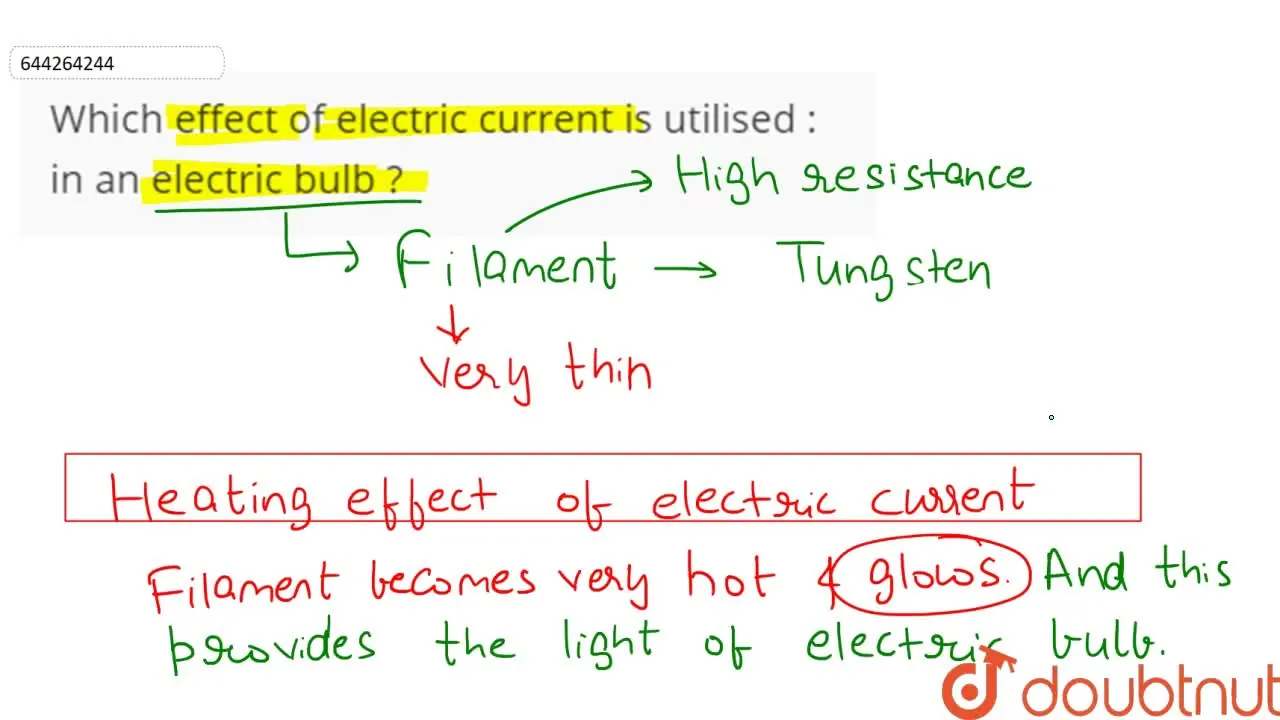 644264244
Which effect of electric current is utilised :
in an electric bulb ?
High resistance
Filament → Tungsten
Very thin
Heating effect of electric current
Filament becomes very hot & glows. And this
provides the light of electric bulb.
doubtnut